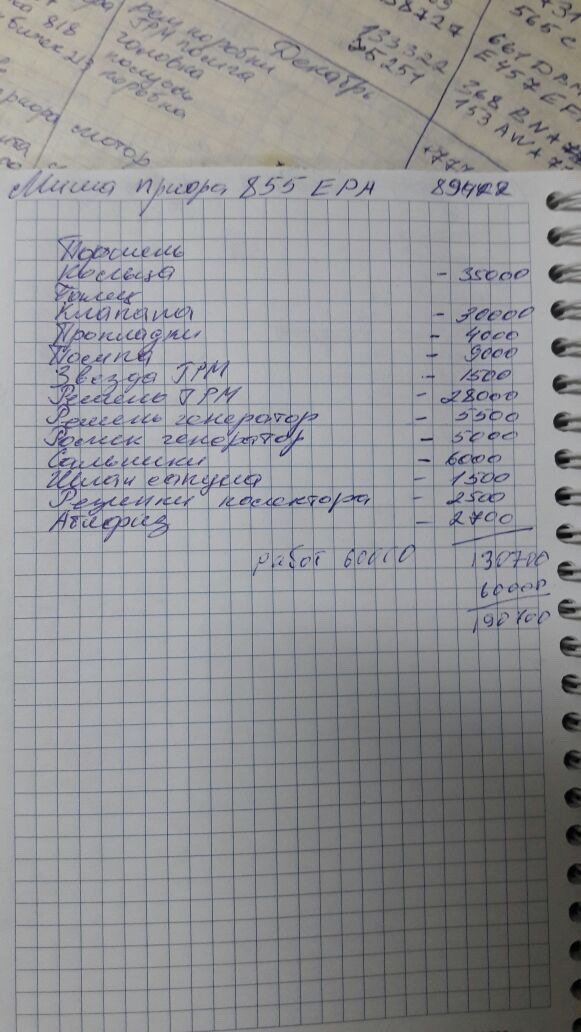 818
рем коробки
ГРМ помпа
головка
Декабрь
133322
75251
565 С
368 BNA
153 AWA
+777
мотор
Миша приора 855 ЕРН 89422
Поршень
Кольца - 35000
Палец
Клапана - 30000
Прокладки - 4000
Помпа - 9000
Звезда ГРМ - 1500
Ремень ГРМ - 28000
Ремень генератор - 5500
Ролик генератор - 5000
Сальники - 6000
Шланг сапуна - 1500
Резинки колектора - 2500
Атифриз - 2700
работ 60000 130700
60000
190700